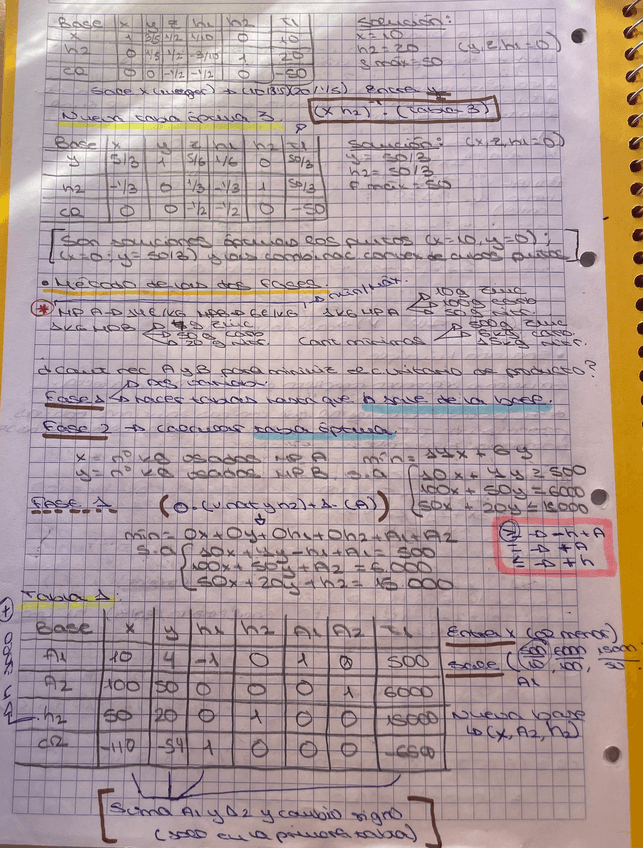 Base x y z h1 h2 TI
x 1 3/5 1/2 1/10 0 10
h2 0 1/5 1/2 -3/10 1 20
CR 0 0 -1/2 -1/2 0 -50
Solución:
x = 10
h2 = 20 (y, z, h1 = 0)
z max = 50
Sale x (menor) Entra y
Nueva tabla óptima 3. (x h2) (tabla 3)
Base x y z h1 h2 TI
y 5/3 1 5/6 1/6 0 50/3
h2 -1/3 0 1/3 -1/3 1 50/3
CR 0 0 -1/2 -1/2 0 -50
Solución: (x, z, h1=0)
y = 50/3
h2 = 50/3
z max = 50
[Son soluciones óptimas los puntos (x=10, y=0);
(x=0; y=50/3) y las combinac convex de ambos puntos]
• Método de las dos fases
1kg MPA 10g zinc
100g
50g
1kg MPB 4g zinc
50g
20g
Cant mínimas 500g zinc
¿Cant nec A y B para minimiz de producto?
Fase 1 hacer tabla hasta que A sale de la base.
Fase 2 → calcular tabla óptima.
x = nº kg usados MPA
y = nº kg usados MPB
s.a 10x + 4y ≥ 500
100x + 50y = 6000
50x + 20y ≤ 15000
Fase 1 (0·(x, y, h1 y h2) + 1·(A))
min = 0x + 0y + 0h1 + 0h2 + A1 + A2
s.a 10x + 4y - h1 + A1 = 500
100x + 50y + A2 = 6.000
50x + 20y + h2 = 15.000
≥ → -h + A
= → +A
≤ → +h
Tabla 1:
Base x y h1 h2 A1 A2 TI
A1 10 4 -1 0 1 0 500
A2 100 50 0 0 0 1 6000
h2 50 20 0 1 0 0 15000
CR -110 -54 1 0 0 0 -6500
Entra x (lo menos)
Sale
A1
Nueva base
(x, A2, h2)
[Suma A1 y A2 y cambio signo
(solo en la primera tabla)]